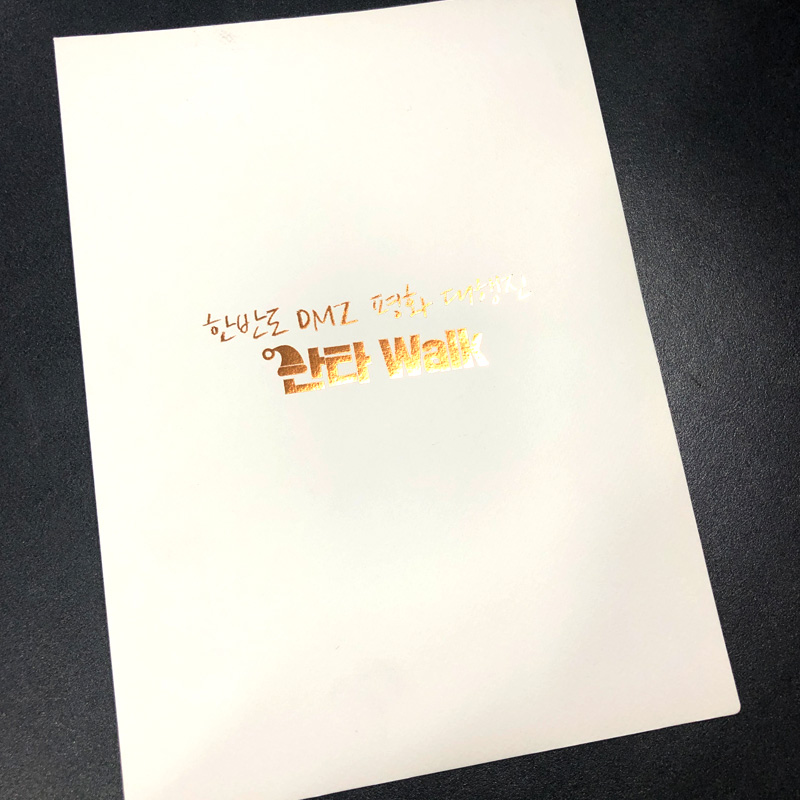 한반도 DMZ 평화 대행진
산타 Walk